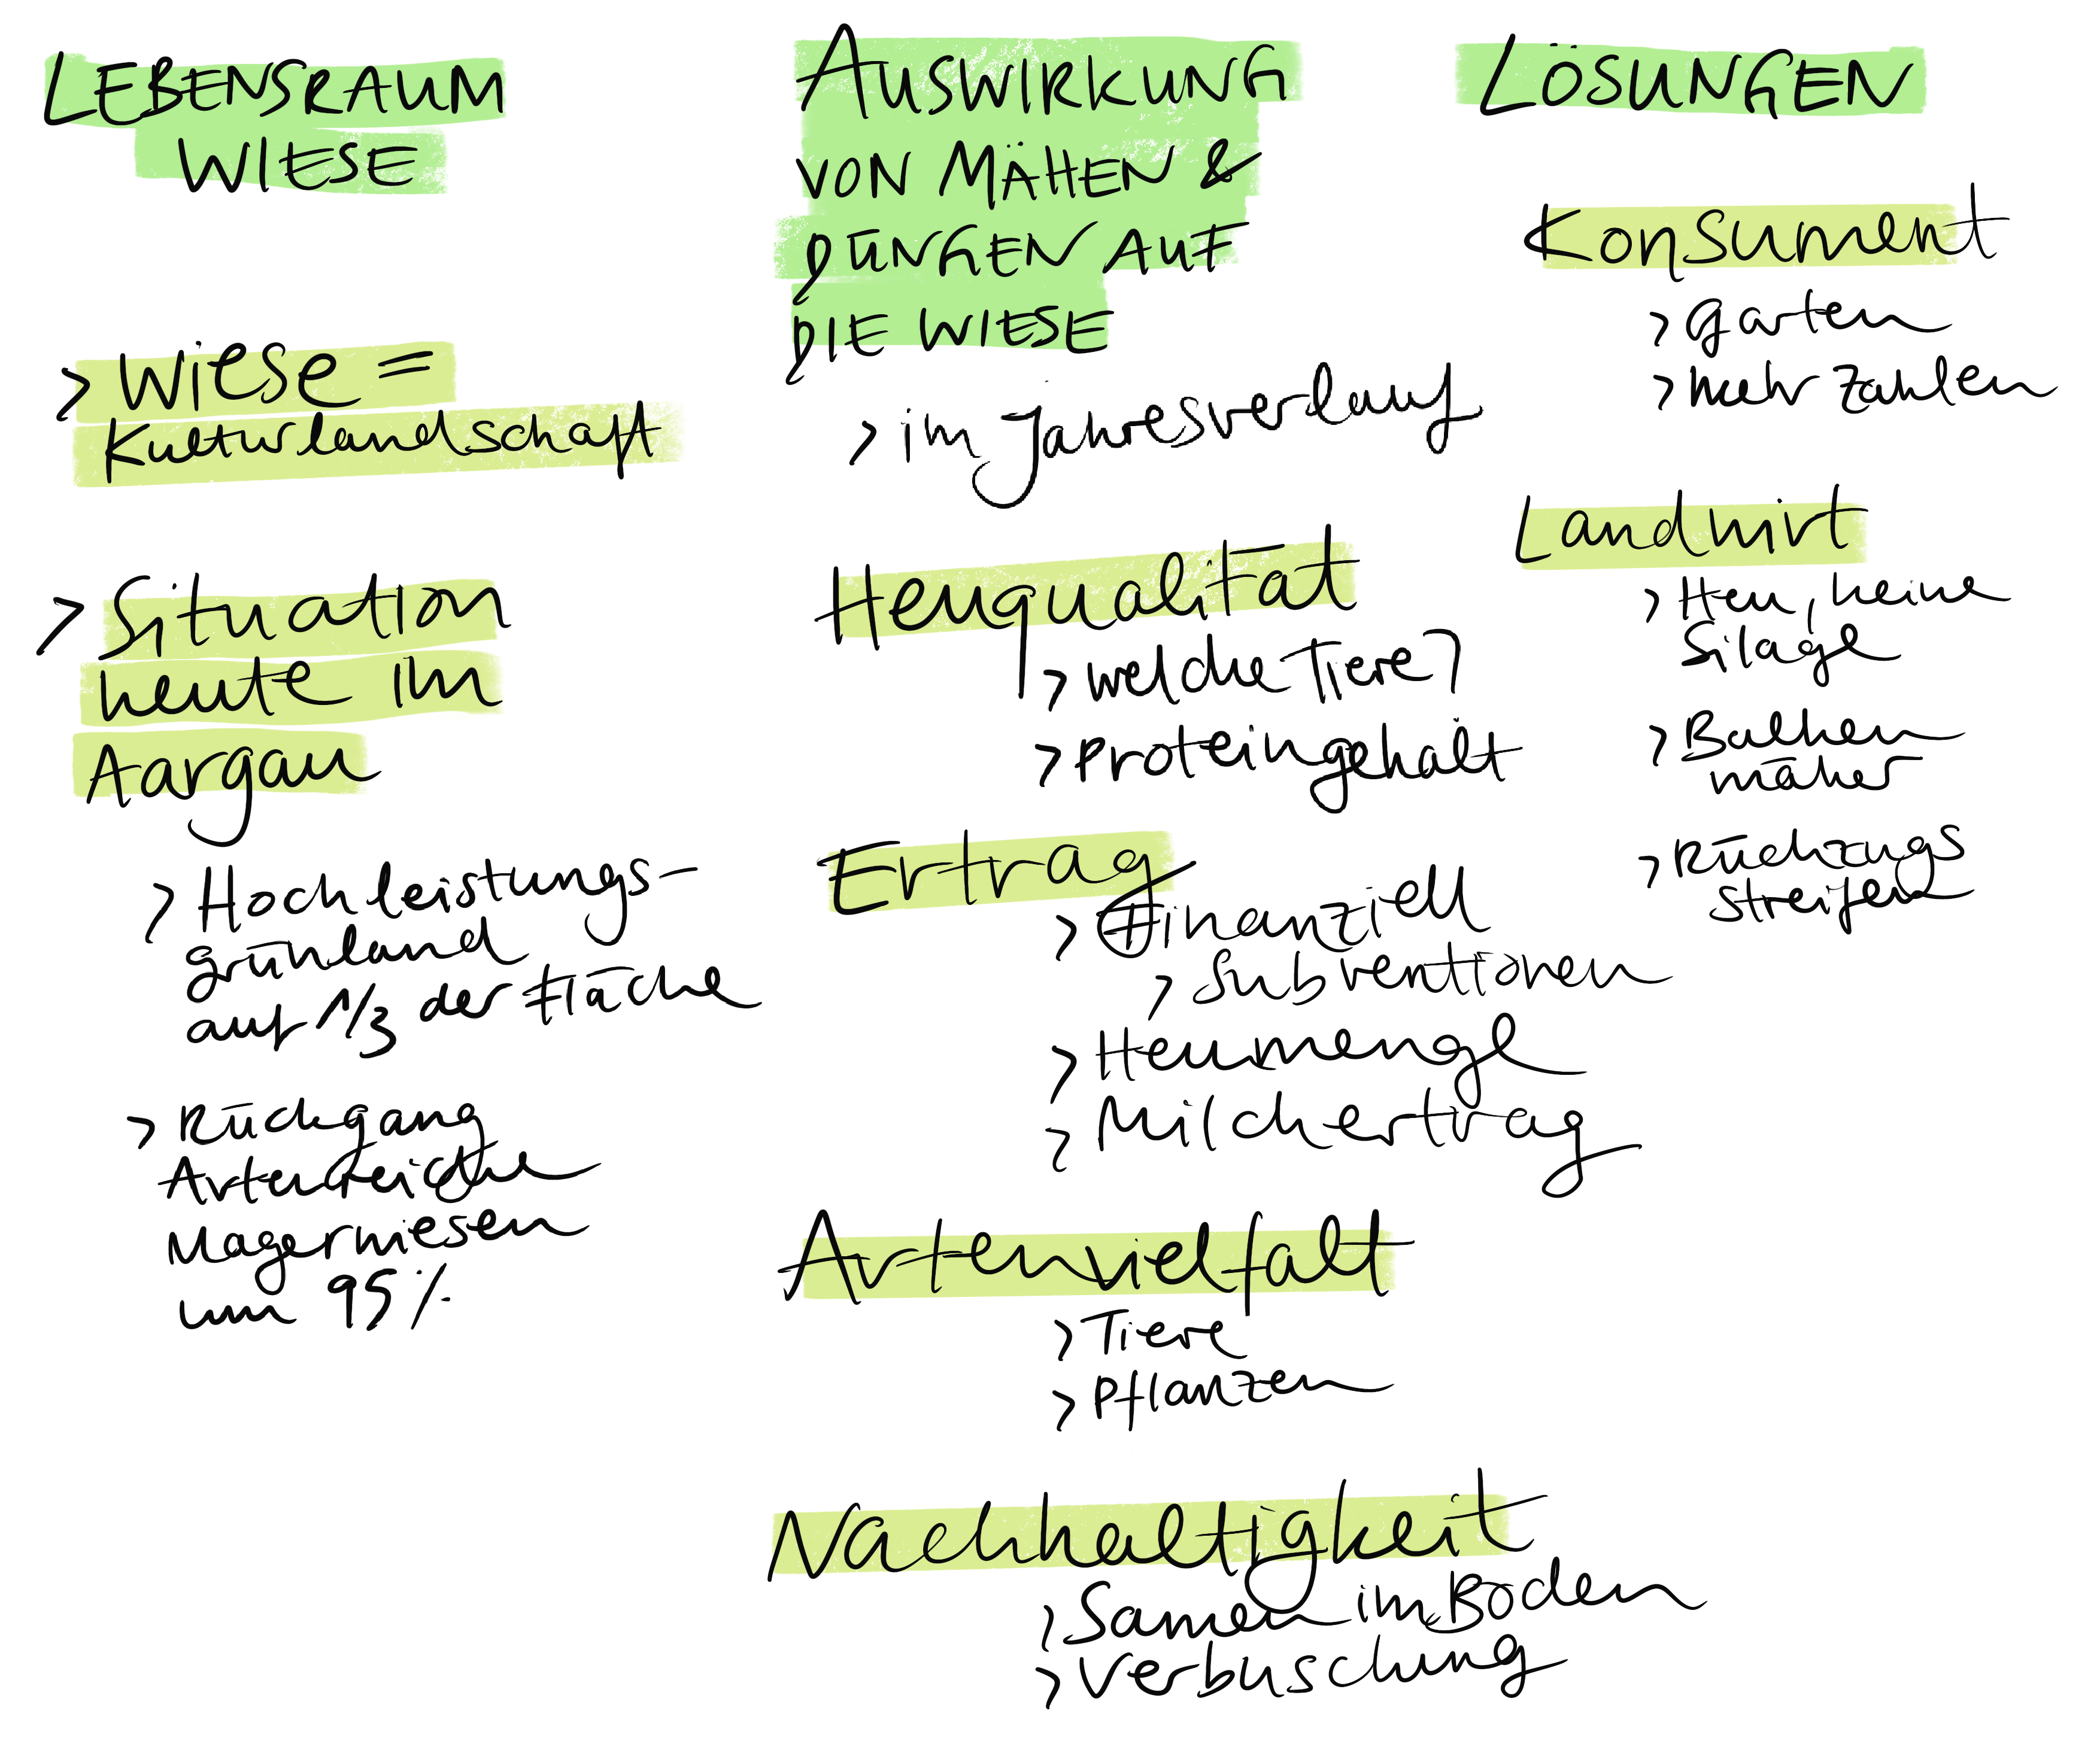 LEBENSRAUM
WIESE
> Wiese =
Kulturlandschaft
> Situation
heute im
Aargau
> Hochleistungs-
grünland
auf 1/3 der Fläche
> Rückgang
Artenreiche
Magerwiesen
um 95%
AUSWIRKUNG
VON MÄHEN &
DÜNGEN AUF
DIE WIESE
> im Jahresverlauf
Heuqualität
> welche Tiere?
> Proteingehalt
Ertrag
> Finanziell
> Subventionen
> Heumenge
> Milchertrag
Artenvielfalt
> Tiere
> Pflanzen
Nachhaltigkeit
> Samen im Boden
> Verbuschung
LÖSUNGEN
Konsument
> Garten
> mehr zahlen
Landwirt
> Heu, keine
Silage
> Balken
mäher
> Rückzugs
streifen